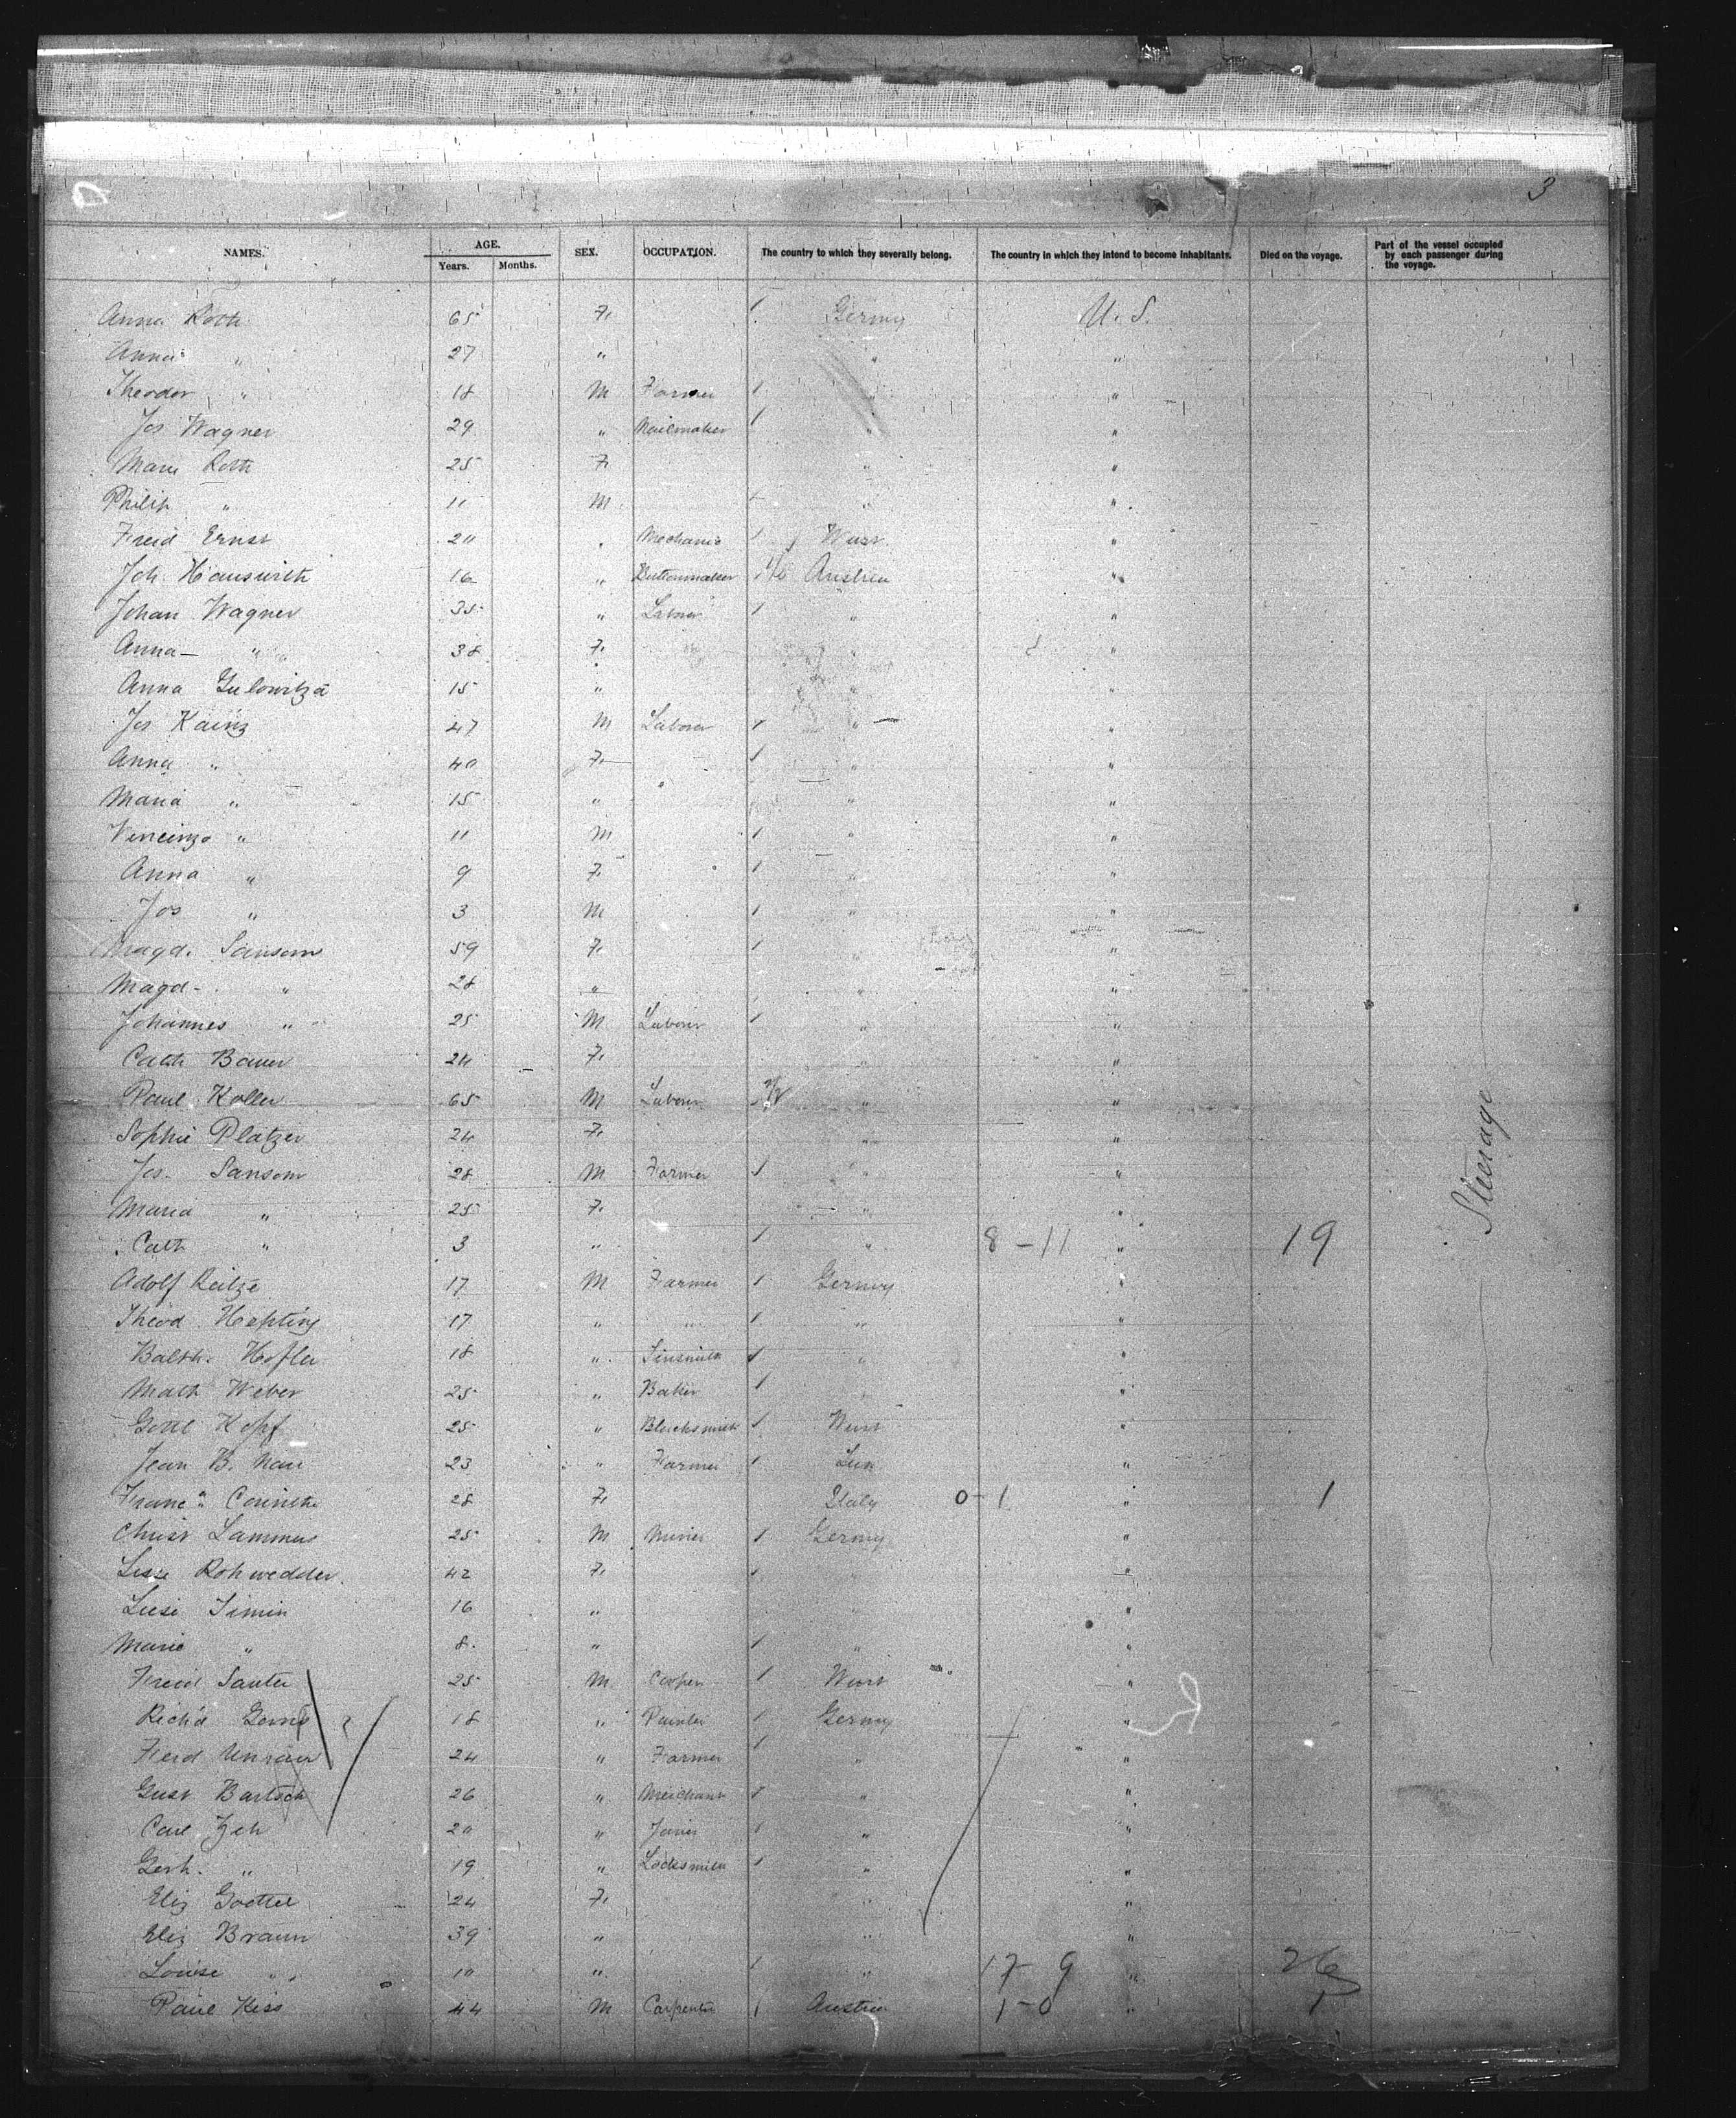 3
NAMES. AGE. SEX. OCCUPATION. The country to which they severally belong. The country in which they intend to become inhabitants. Died on the voyage. Part of the vessel occupied by each passenger during the voyage.
Years. Months.
Anna Roth 65 F. Germy U. S.
Anna " 27 " " "
Theodor " 18 M Farmer " "
Jos Wagner 29 " Nailmaker " "
Marie Roth 25 F. " "
Philip " 11 M " "
Fried Ernst 20 " Mechanic Wurt. "
Joh. Hauswirth 16 " Buttonmaker Austria "
Johan Wagner 35 " Labour " "
Anna " 38 F. " "
Anna 15 " " "
Jos Kainz 47 M Labour " "
Anna " 40 F. " "
Maria " 15 " " "
Vincenz " 11 M " "
Anna " 9 F. " "
Jos " 3 M " "
Magd. Sansom 59 F. " "
Magd. " 28 " " "
Johannes " 25 M Labour " "
Cath Bauer 24 F. "
Paul Koller 65 M Labour " "
Sophie Platzer 24 F. " "
Jos. Sansom 28 M Farmer " "
Maria " 25 F. " "
Cath " 3 " " 8-11 " 19
Adolf Reitze 17 M Farmer Germy "
Theod. Hepting 17 " " " "
Balth. Hofler 18 " Tinsmith " "
Math Weber 25 " Baker " "
Gottl Kopf 25 " Blacksmith Wurt "
Jean B. Nau 23 " Farmer "
28 F. Italy 0-1 " 1
Christ Lammers 25 M Miner Germy "
Rohwedder 42 F. "
Simin 16 " "
Marie " 8 " " "
Fried Sauter 25 M Cooper Wurt "
Rich'd 18 " Painter Germy "
Ferd 24 " Farmer " "
Gust. Bartsch 26 " Merchant " "
Carl Zeh 20 " " "
Gerh. " 19 " Locksmith " "
Eliz Goettel 24 F. " "
Eliz Braun 39 " " "
Louise " 10 " " 17-9 " 26
Paul Kiss 44 M Carpenter Austria 1-0 " 1
Steerage